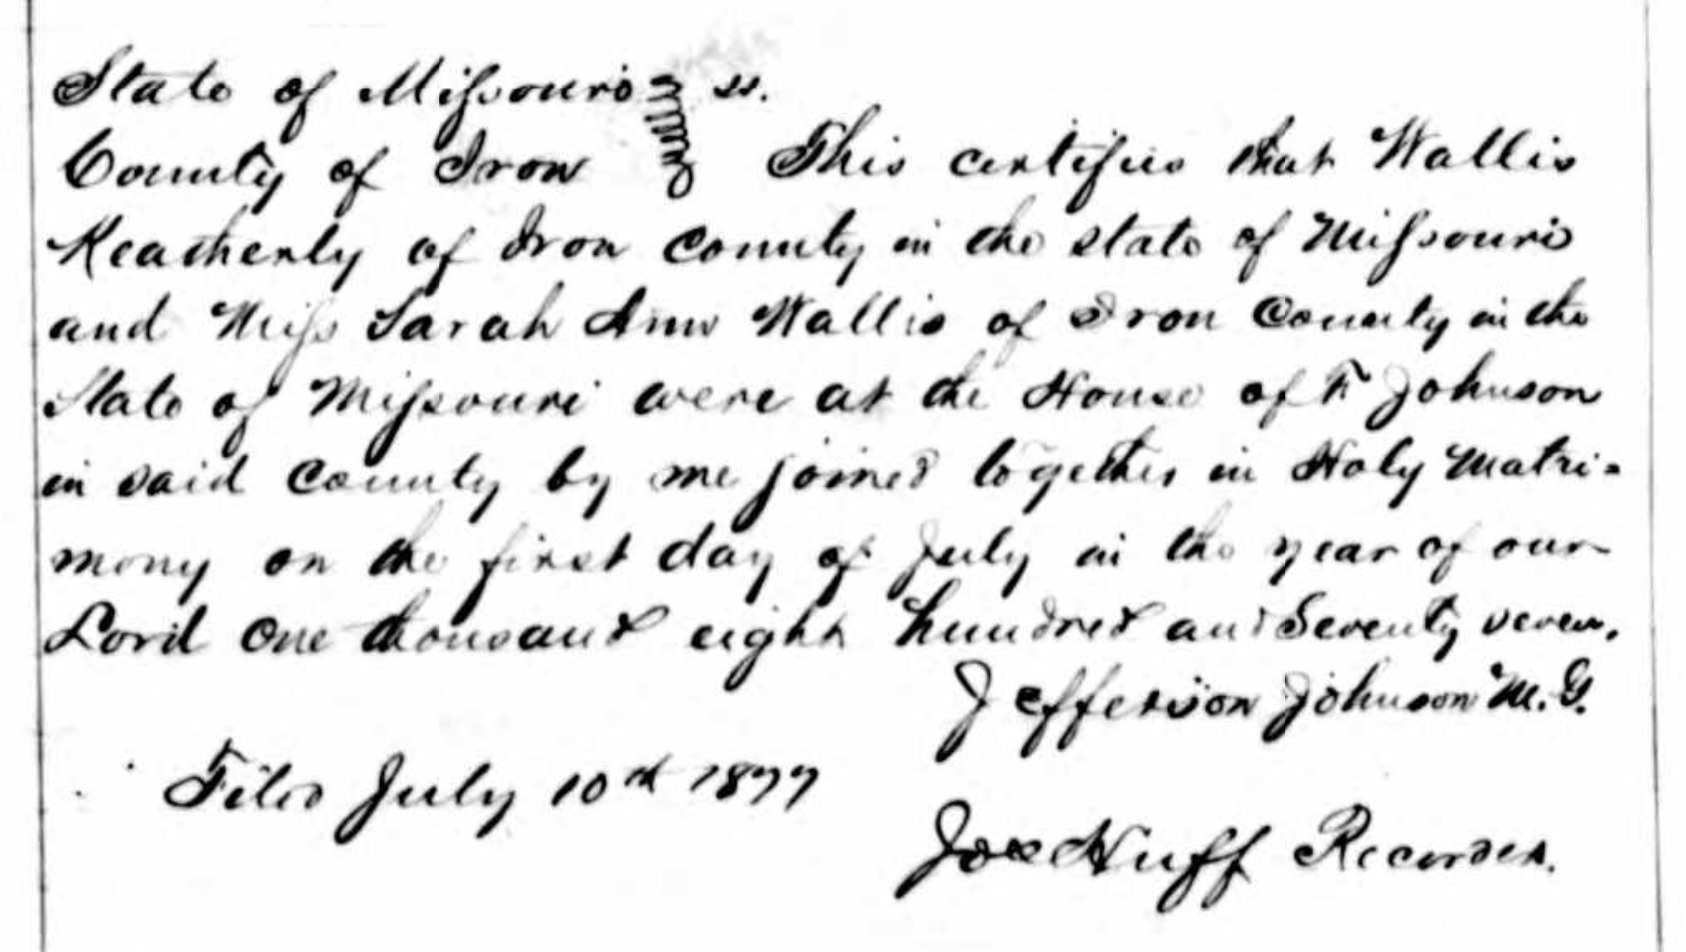 State of Missouri } ss.
County of Iron } This certifies that Wallis
Keatherly of Iron County in the state of Missouri
and Miss Sarah Ann Wallis of Iron County in the
State of Missouri were at the House of F Johnson
in said County by me joined together in Holy Matri=
mony on the first day of July in the year of our
Lord One thousand eight hundred and Seventy seven.
Jefferson Johnson M. G.
Filed July 10th 1877
Joe Huff Recorder.